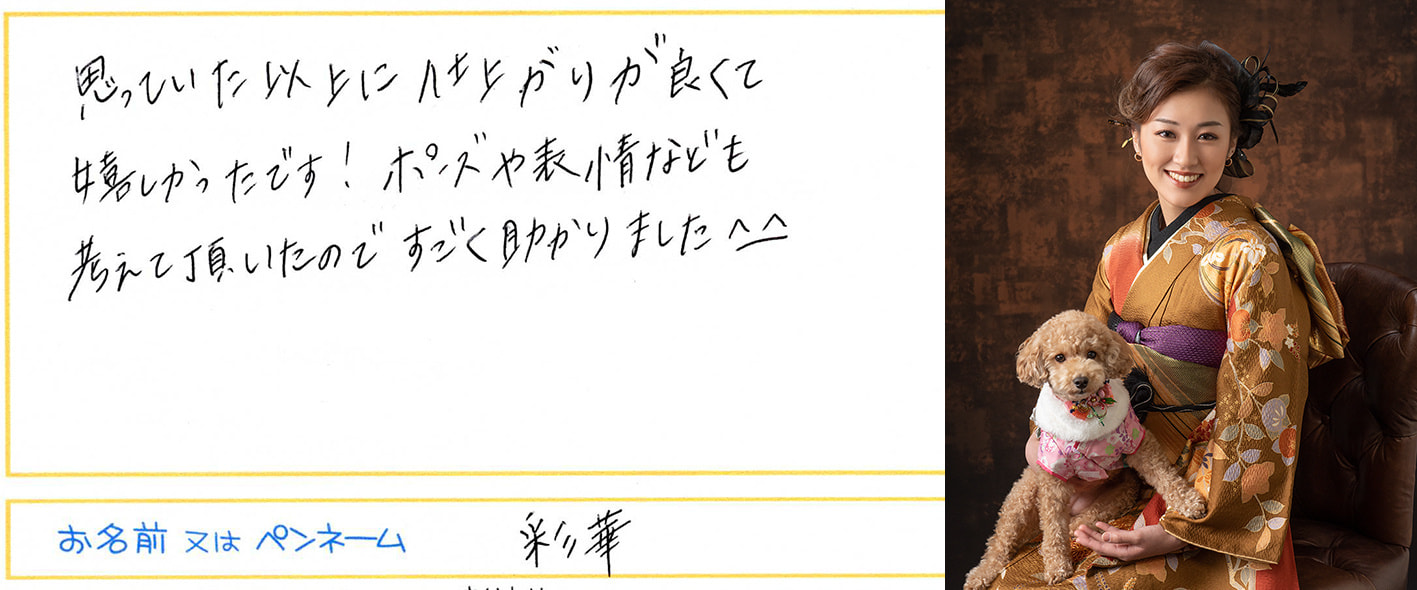 思っていた以上に仕上がりが良くて
嬉しかったです！ポーズや表情なども
考えて頂いたのですごく助かりました^^
お名前 又は ペンネーム 彩華